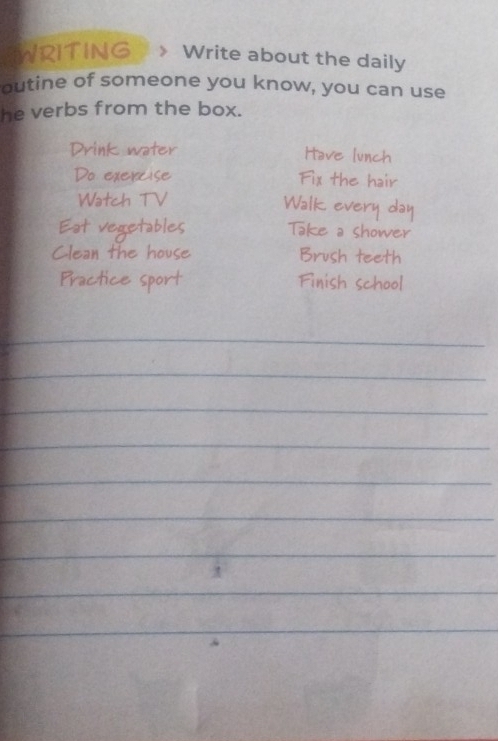 WRITING > Write about the daily
outine of someone you know, you can use
he verbs from the box.
Drink water
Do exercise
Watch TV
Eat vegetables
Clean the house
Practice sport
Have lunch
Fix the hair
Walk every day
Take a shower
Brush teeth
Finish school